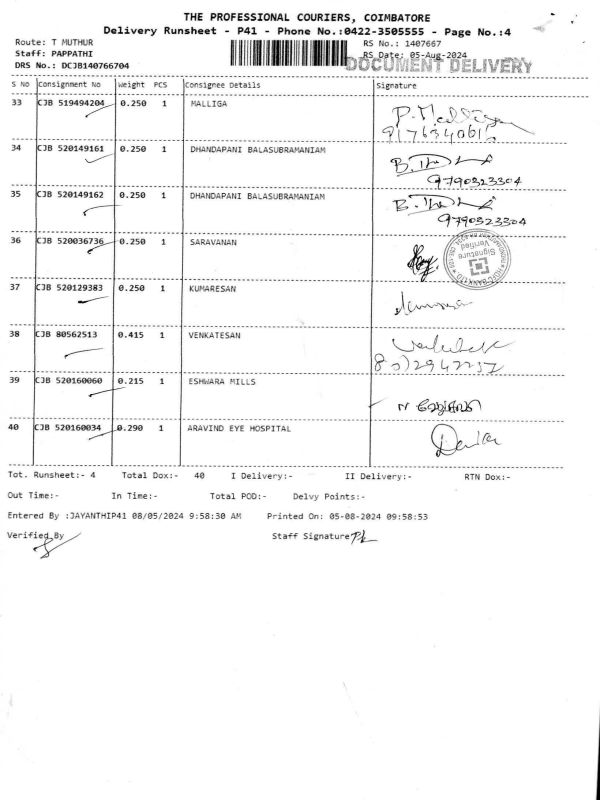 THE PROFESSIONAL COURIERS, COIMBATORE
Delivery Runsheet - P41 - Phone No.:0422-3505555 - Page No.:4
Route: T MUTHUR RS No.: 1407667
Staff: PAPPATHI RS Date: 05-Aug-2024
DRS No.: DCJB140766704 DOCUMENT DELIVERY
S No Consignment No Weight PCS Consignee Details Signature
33 CJB 519494204 0.250 1 MALLIGA P. Malliga
34 CJB 520149161 0.250 1 DHANDAPANI BALASUBRAMANIAM
9790323304
35 CJB 520149162 0.250 1 DHANDAPANI BALASUBRAMANIAM
9790323304
36 CJB 520036736 0.250 1 SARAVANAN
Signature Verified
37 CJB 520129383 0.250 1 KUMARESAN
38 CJB 80562513 0.415 1 VENKATESAN
39 CJB 520160060 0.215 1 ESHWARA MILLS
40 CJB 520160034 0.290 1 ARAVIND EYE HOSPITAL
Tot. Runsheet:- 4 Total Dox:- 40 I Delivery:- II Delivery:- RTN Dox:-
Out Time:- In Time:- Total POD:- Delvy Points:-
Entered By :JAYANTHIP41 08/05/2024 9:58:30 AM Printed On: 05-08-2024 09:58:53
Verified By Staff Signature